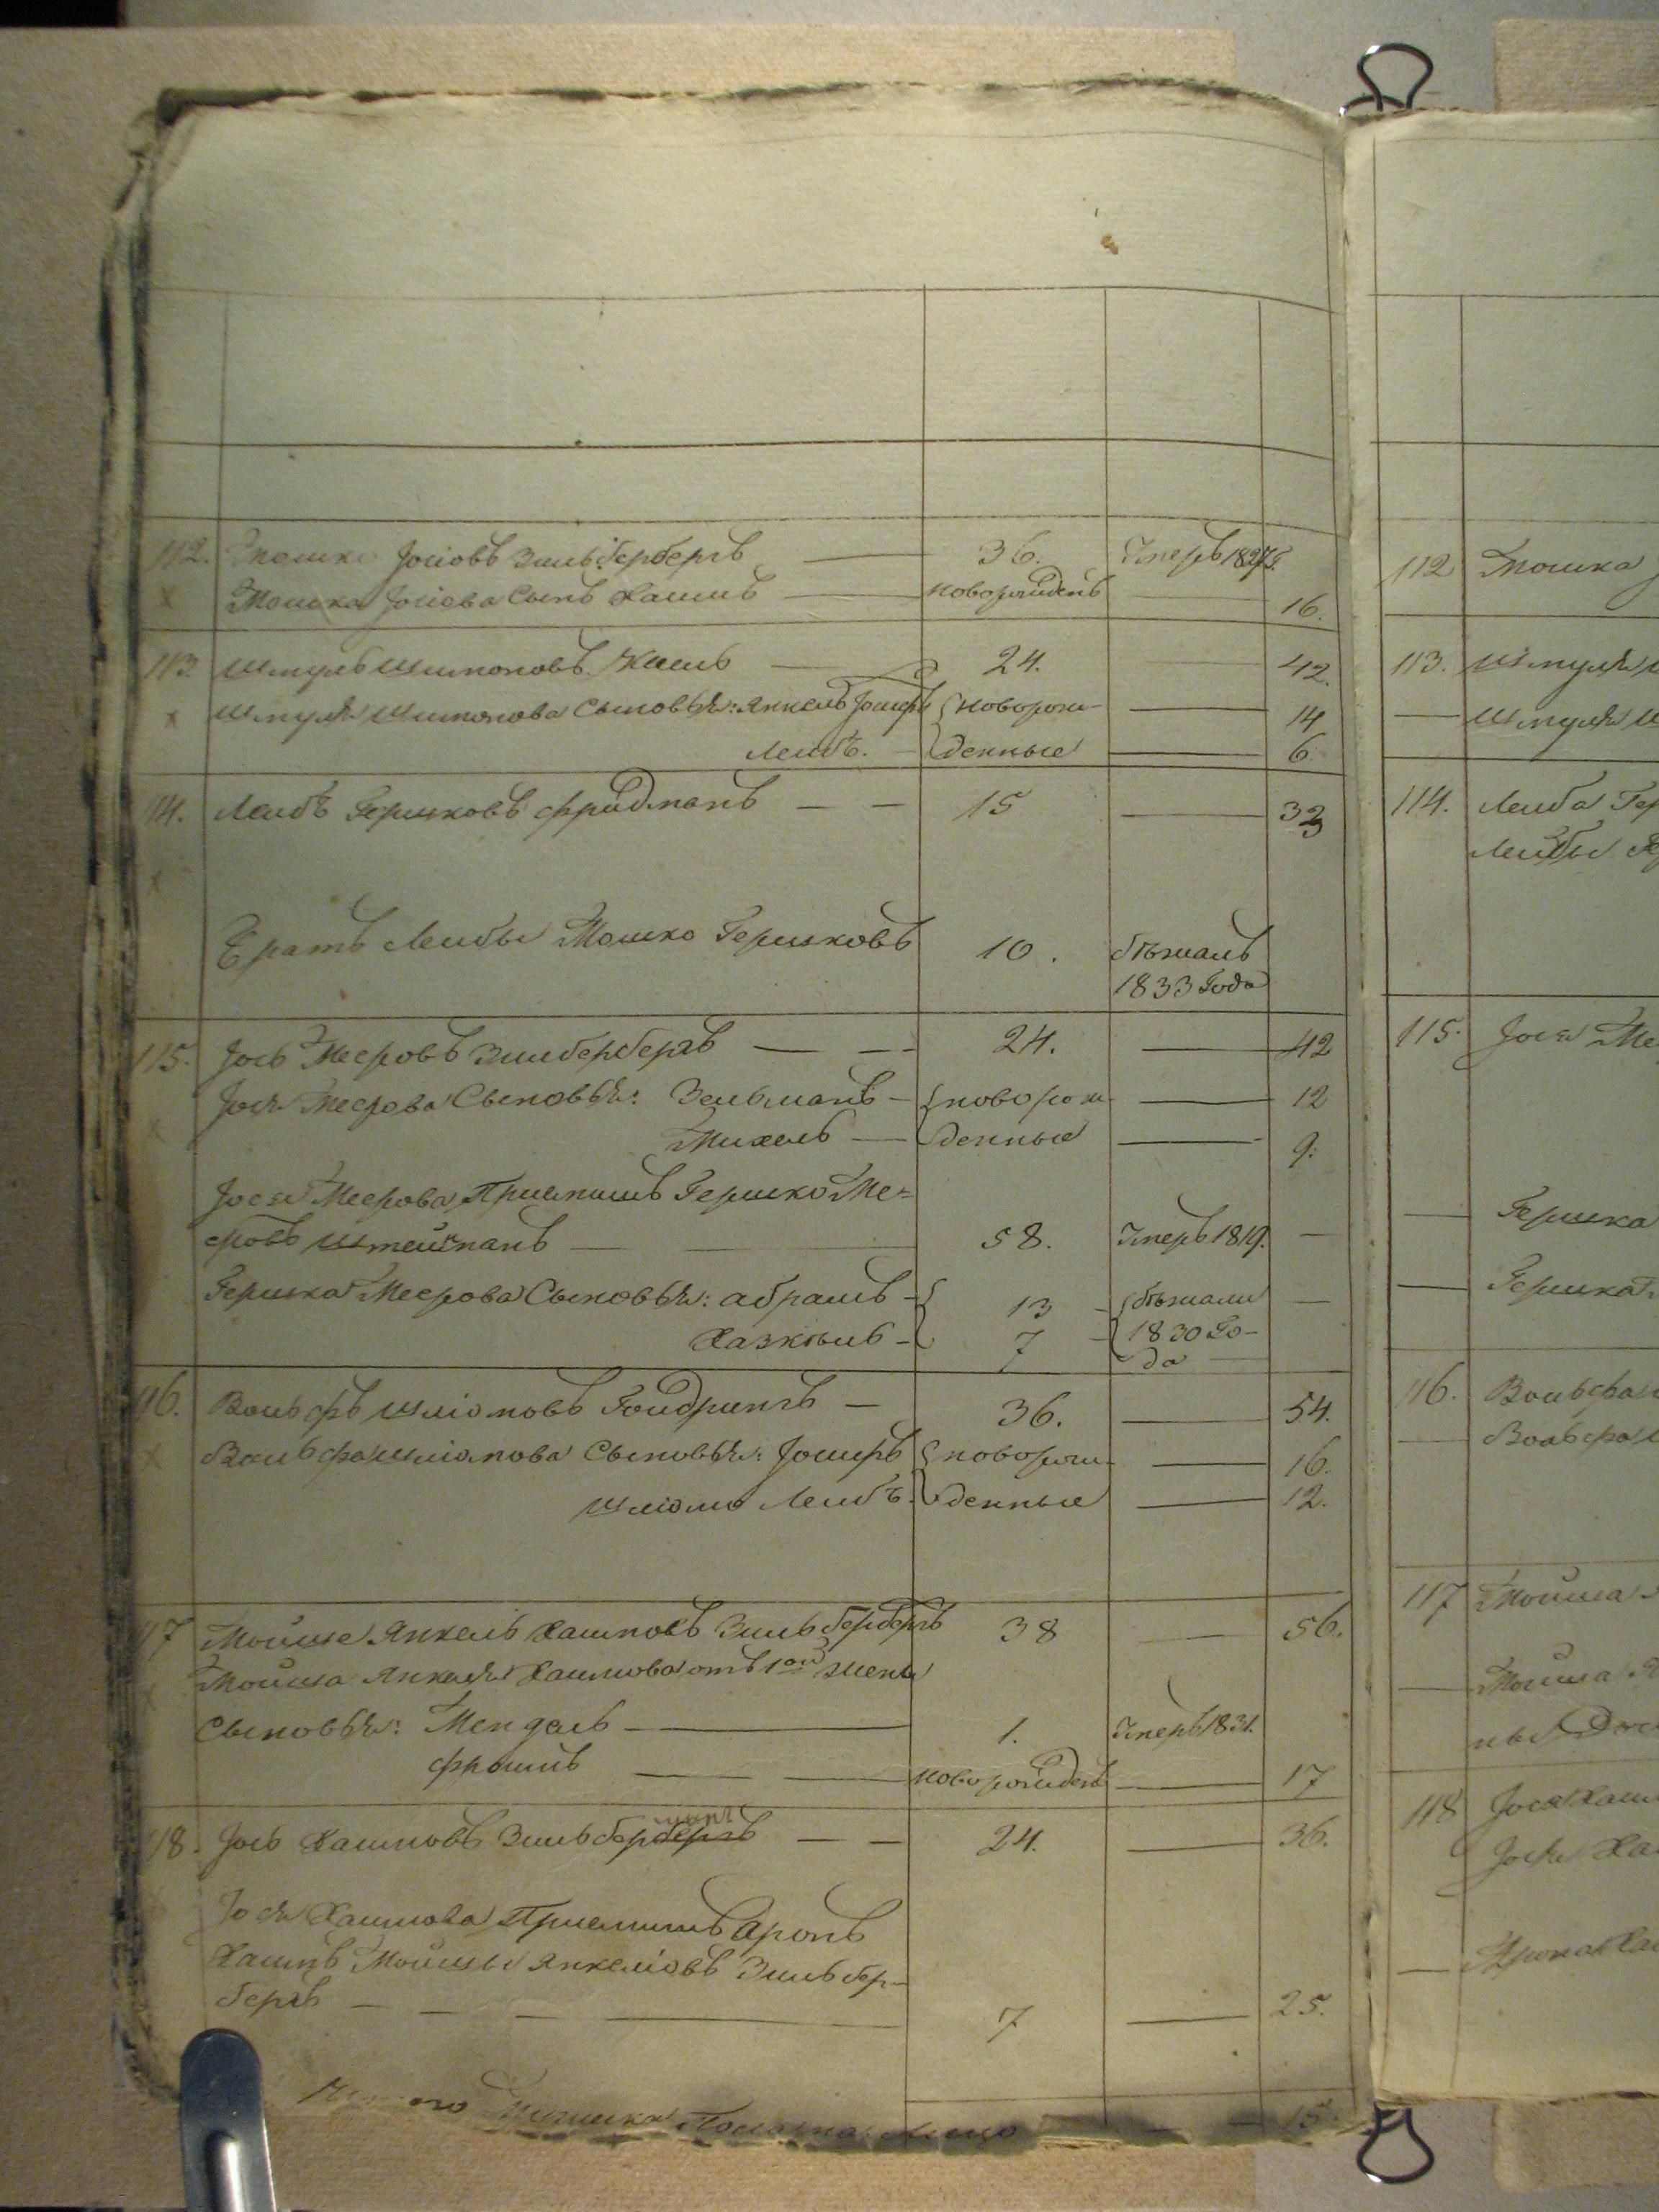 112. Мошко Іосіовъ Зильбербергъ — 36. Умеръ 1827
Мошка Іосіова Сынъ Хаимъ — новорожденъ — 16.
113. Шмуль Шимоновъ Кацъ — 24. — 42.
Шмуля Шимонова Сыновья: Янкель Іошеръ новорож- — 14
Лейбъ. — денные — 6
114. Лейбъ Гершковъ Фридманъ — — 15 — 33
Братъ Лейбы Мошко Гершковъ 10. бѣжалъ
1833 Года
115. Іось Мееровъ Зильбербергъ — — 24. — 42
Іося Меерова Сыновья: Зельманъ — новорож- — 12
Михель — денные — 9.
Іося Меерова Приемышъ Гершко Ме-
еровъ — 58. Умеръ 1819. —
Гершка Меерова Сыновья: Абрамъ — 13 — бѣжали —
Хазкель — 7 — 1830 Го-
да —
116. Вольфъ Шліомовъ Гольдрингъ — 36. — 54.
Вольфа Шліомова Сыновья: Іошеръ новорож- — 16.
Шліомо Лейбъ денные — 12.
117 Мойше Янкель Хаимовъ Зильбербергъ 38 — 56.
Мойша Янкеля Хаимова отъ 1ой жены
Сыновья: Мендель — 1. Умеръ 1831.
Фроимъ — новорожденъ — 17
118. Іось Хаимовъ Зильбербергъ — — 24. — 36.
Іося Хаимова Приемышъ Аронъ
Хаимъ Мойшы Янкеліовъ Зильбер-
бергъ — 7 — 25.
Мужеска Пола на Лицо — 15.
112 Мошка
113. Шмуля
— Шмуля
114. Лейба Гер
Лейбы
115. Іося Ме
— Гершка
— Гершка
116. Вольфа
— Вольфа
117 Мойша
— Мойша Я
ны
118 Іося Хаим
Іося Ха
— Арона Хаи